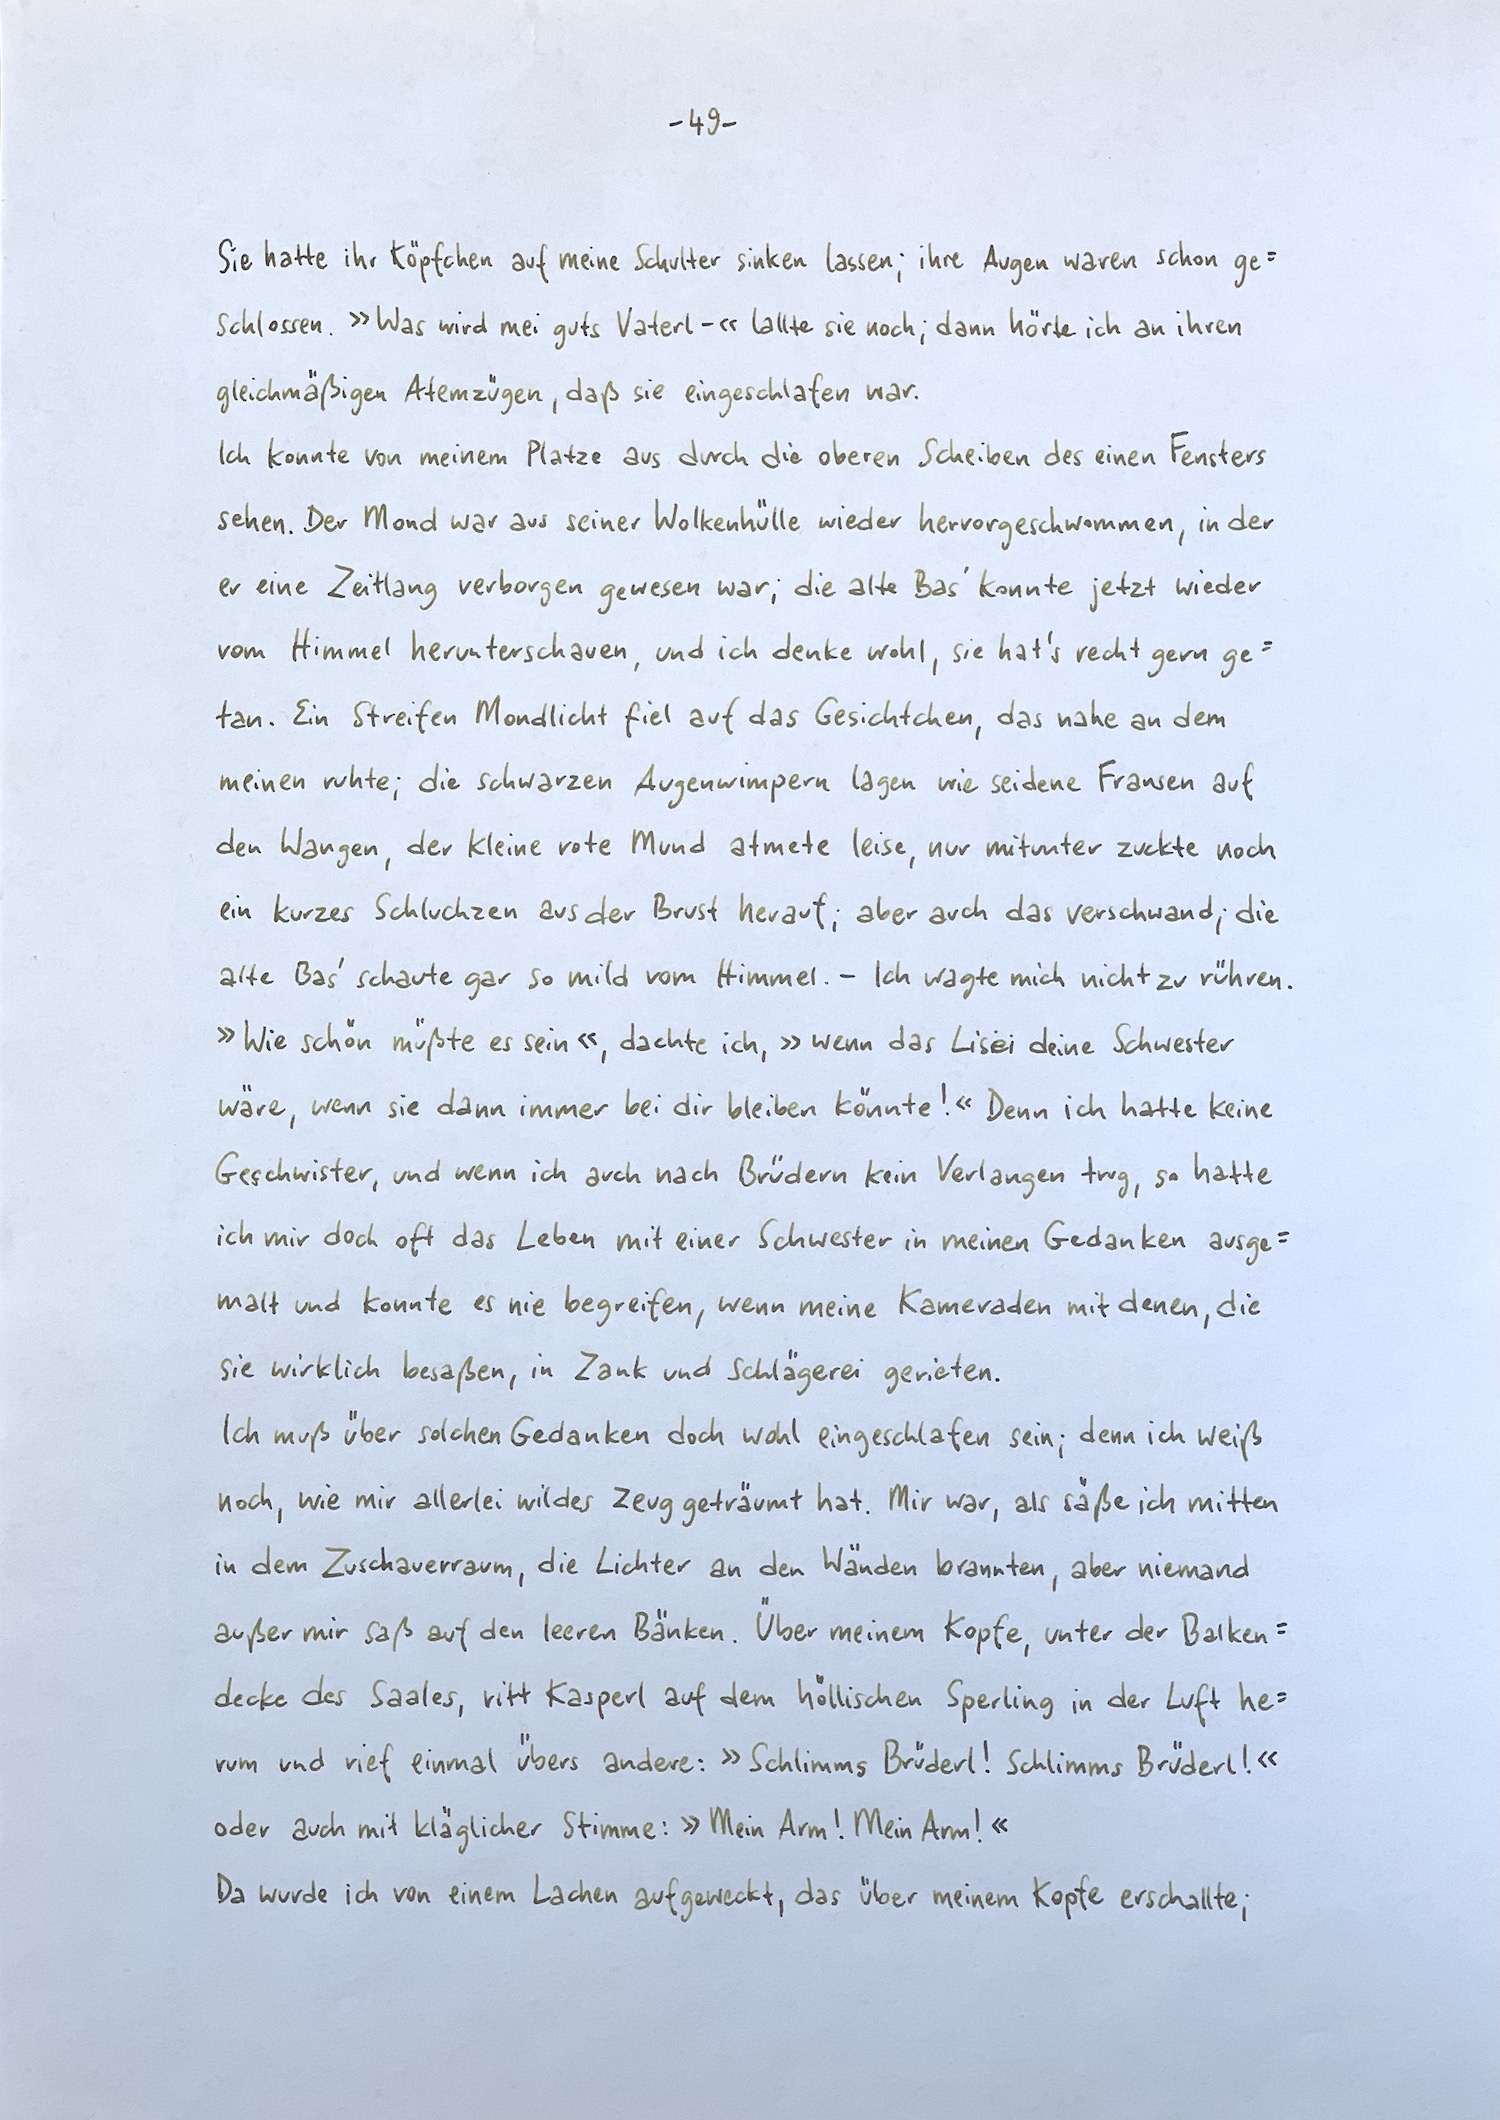 -49-
Sie hatte ihr Köpfchen auf meine Schulter sinken lassen; ihre Augen waren schon ge=
schlossen. »Was wird mei guts Vaterl-« lallte sie noch; dann hörte ich an ihren
gleichmäßigen Atemzügen, daß sie eingeschlafen war.
Ich konnte von meinem Platze aus durch die oberen Scheiben des einen Fensters
sehen. Der Mond war aus seiner Wolkenhülle wieder hervorgeschwommen, in der
er eine Zeitlang verborgen gewesen war; die alte Bas' konnte jetzt wieder
vom Himmel herunterschauen, und ich denke wohl, sie hat's recht gern ge=
tan. Ein Streifen Mondlicht fiel auf das Gesichtchen, das nahe an dem
meinen ruhte; die schwarzen Augenwimpern lagen wie seidene Fransen auf
den Wangen, der kleine rote Mund atmete leise, nur mitunter zuckte noch
ein kurzes Schluchzen aus der Brust herauf; aber auch das verschwand; die
alte Bas' schaute gar so mild vom Himmel. – Ich wagte mich nicht zu rühren.
»Wie schön müßte es sein«, dachte ich, »wenn das Lisei deine Schwester
wäre, wenn sie dann immer bei dir bleiben könnte!« Denn ich hatte keine
Geschwister, und wenn ich auch nach Brüdern kein Verlangen trug, so hatte
ich mir doch oft das Leben mit einer Schwester in meinen Gedanken ausge=
malt und konnte es nie begreifen, wenn meine Kameraden mit denen, die
sie wirklich besaßen, in Zank und Schlägerei gerieten.
Ich muß über solchen Gedanken doch wohl eingeschlafen sein; denn ich weiß
noch, wie mir allerlei wildes Zeug geträumt hat. Mir war, als säße ich mitten
in dem Zuschauerraum, die Lichter an den Wänden brannten, aber niemand
außer mir saß auf den leeren Bänken. Über meinem Kopfe, unter der Balken=
decke des Saales, ritt Kasperl auf dem höllischen Sperling in der Luft he=
rum und rief einmal übers andere: »Schlimms Brüderl! Schlimms Brüderl!«
oder auch mit kläglicher Stimme: »Mein Arm! Mein Arm!«
Da wurde ich von einem Lachen aufgeweckt, das über meinem Kopfe erschallte;